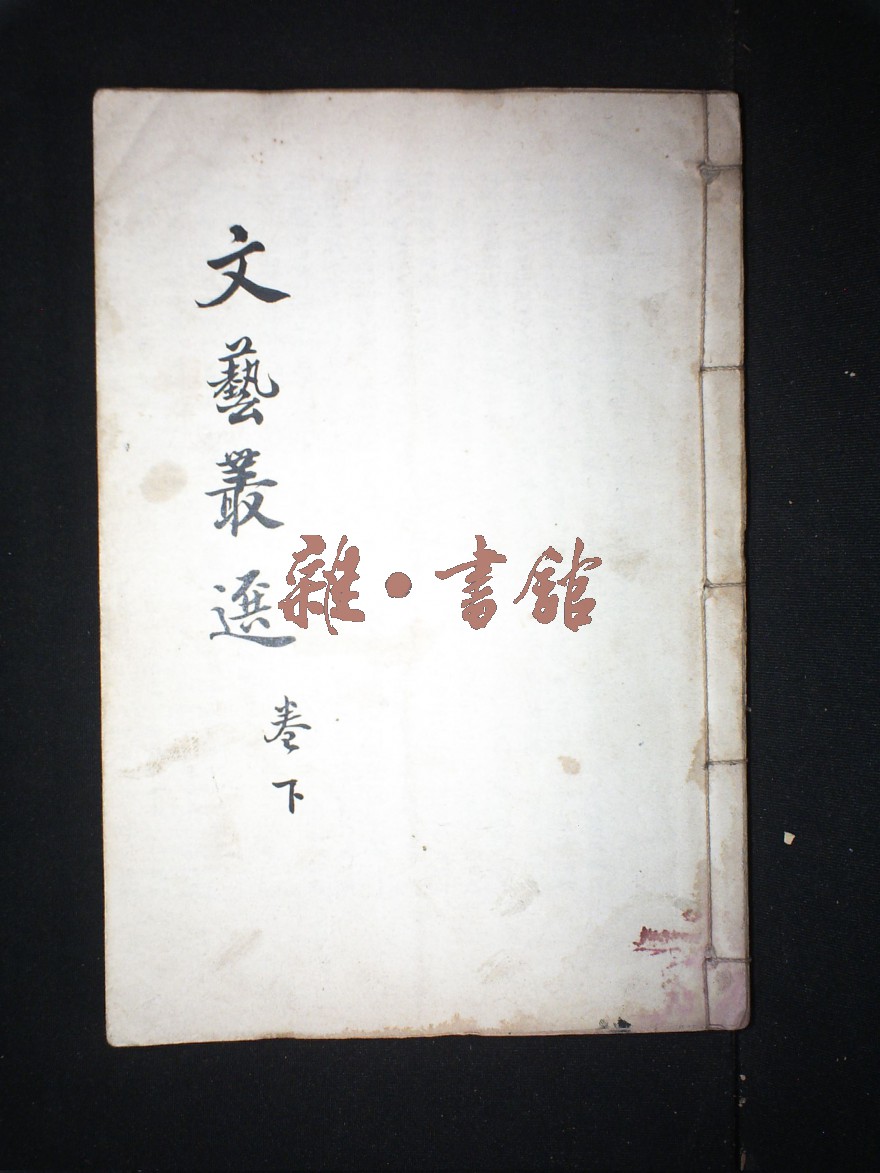 文藝叢選
卷下
雜·書館